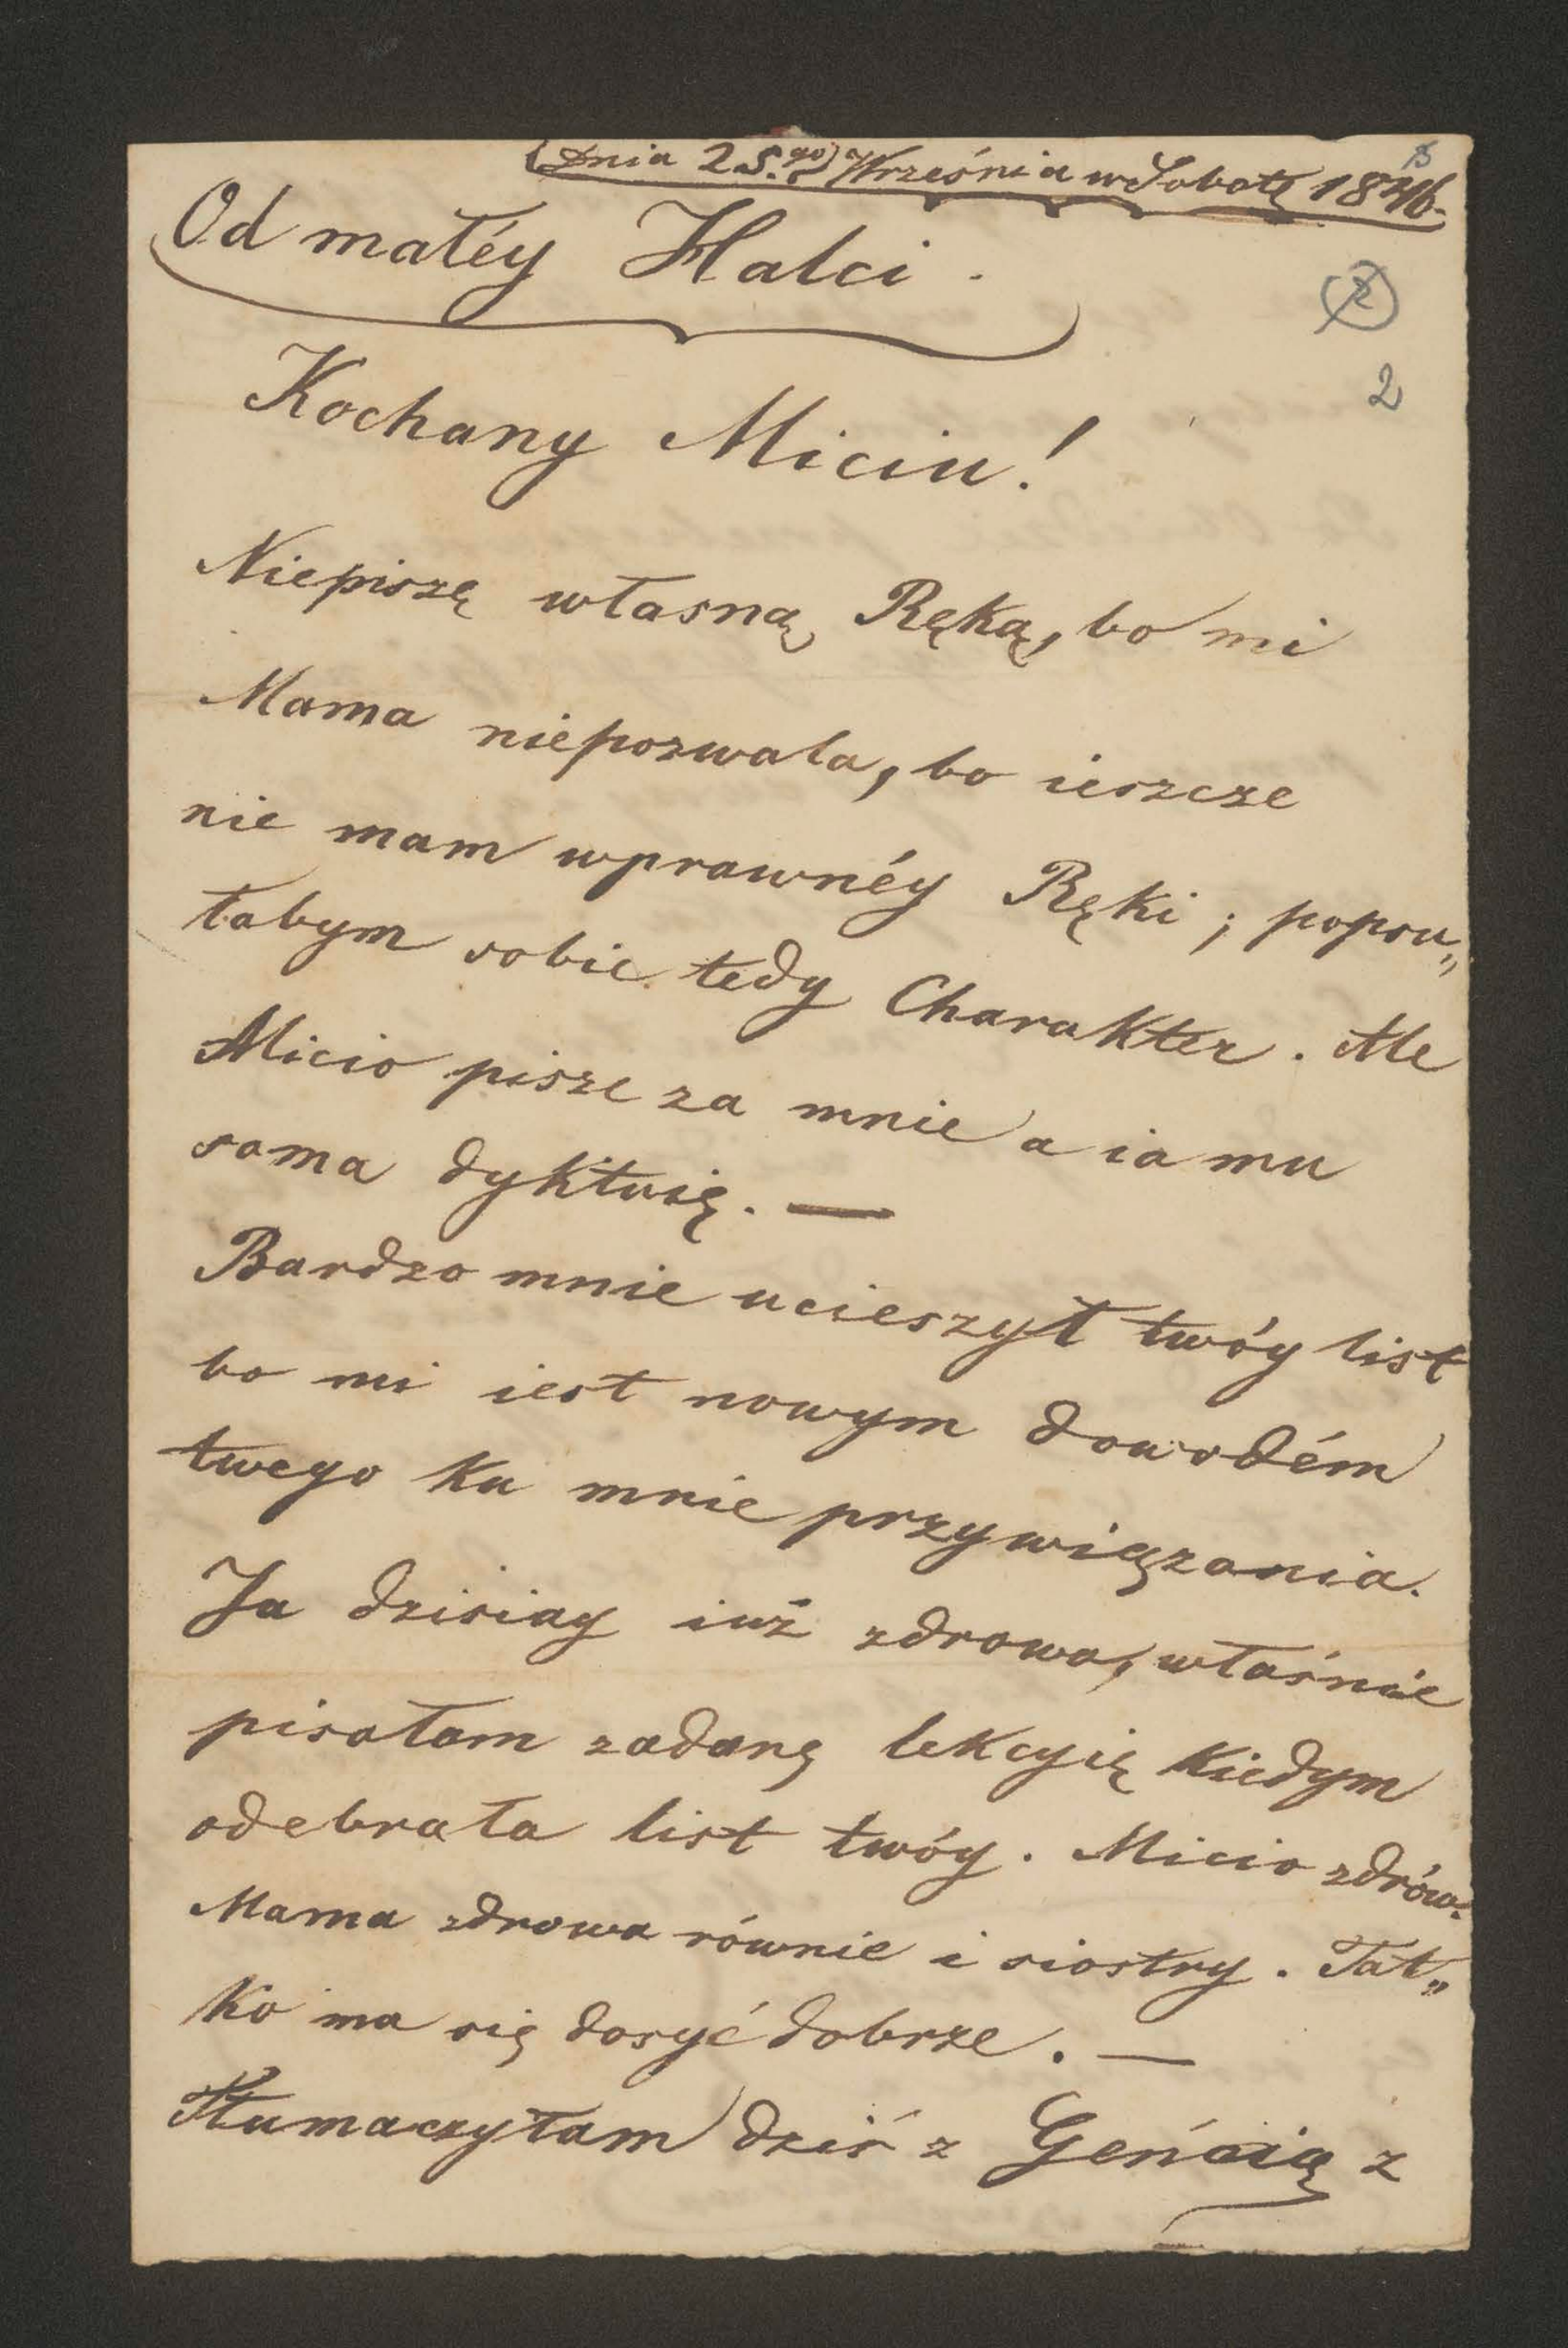 Dnia 25.go Września w Sobotę 1846.
Od małéy Halci.
2
2
Kochany Miciu!
Niepiszę własną Ręką, bo mi
Mama niepozwala, bo ieszcze
nie mam wprawnéy Ręki; popsu„
łabym sobie tedy Charakter. Ale
Micio pisze za mnie a ia mu
sama dyktuię. —
Bardzo mnie ucieszył twóy list
bo mi iest nowym dowodém
twego ku mnie przywiązania.
Ja dzisiay iuż zdrowa, właśnie
pisałam zadaną lekcyię kiedym
odebrała list twóy. Micio zdrów.
Mama zdrowa równie i siostry. Tat„
ko ma się dosyć dobrze. —
Tłumaczyłam dziś z Geńcią z